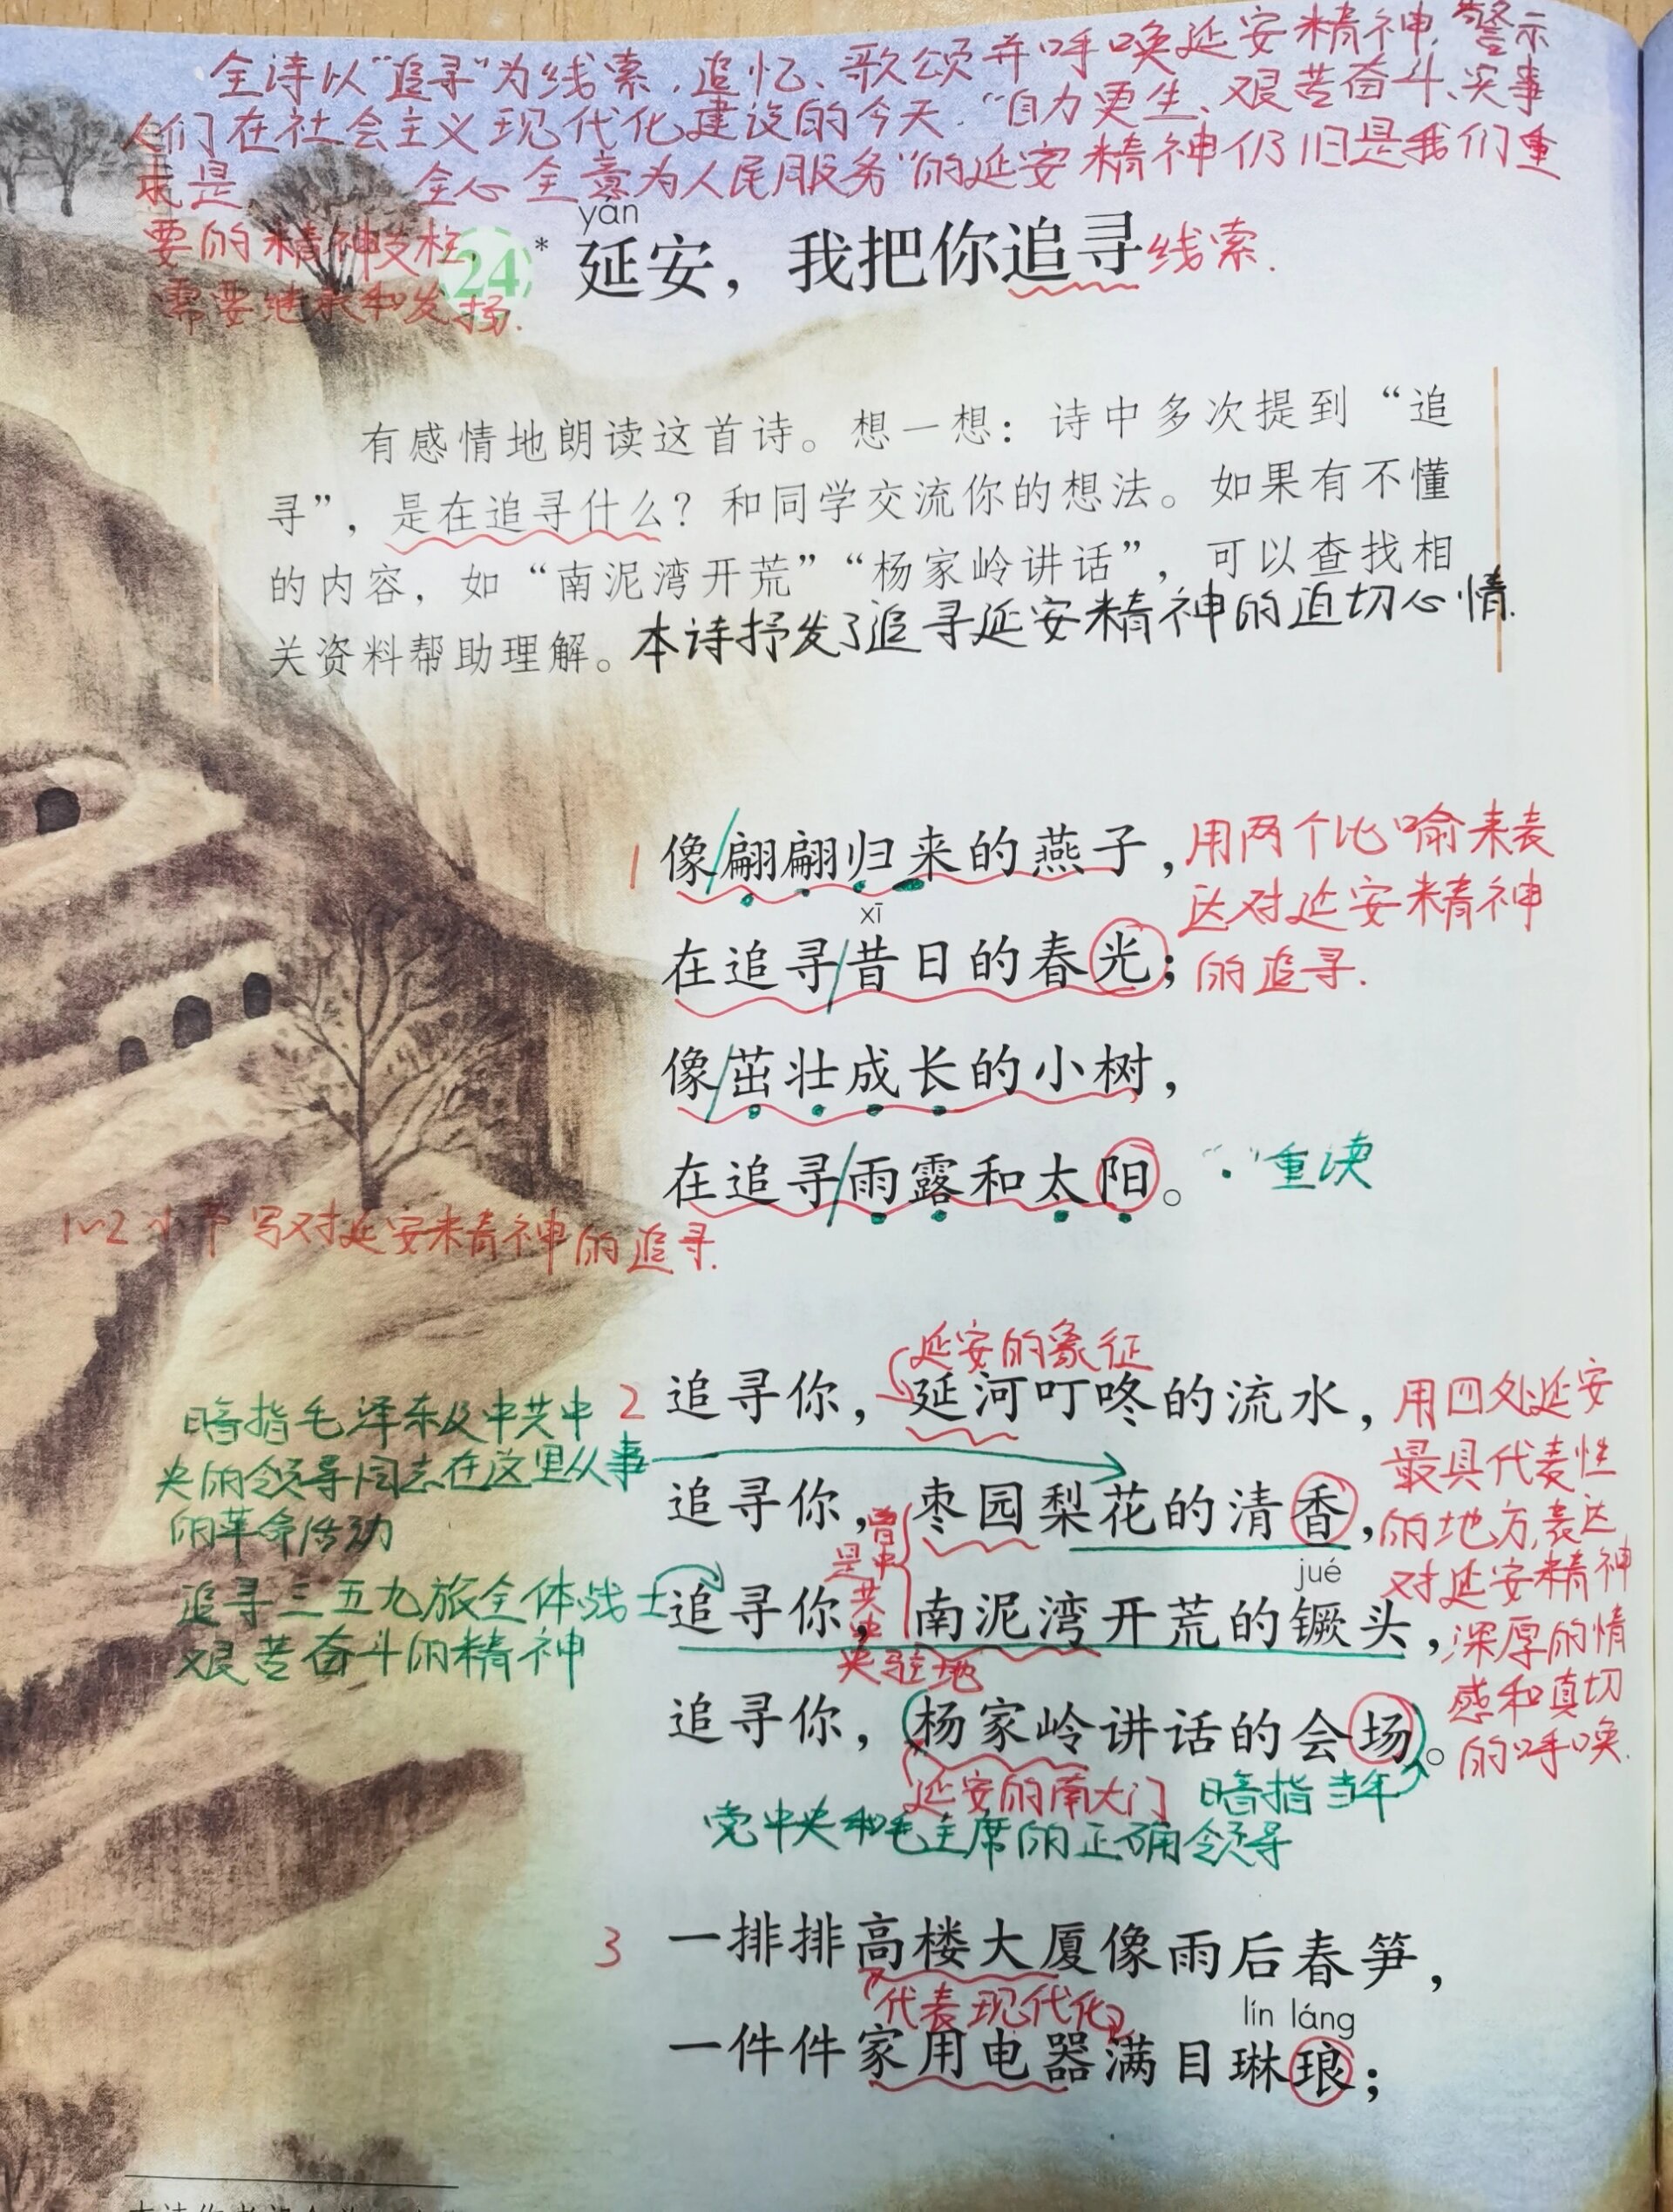 全诗以“追寻”为线索，追忆、歌颂并呼唤延安精神，警示
人们在社会主义现代化建设的今天，“自力更生、艰苦奋斗、实事
求是 全心全意为人民服务”的延安精神仍旧是我们重
要的精神支柱，
需要继承和发扬.
yán
24* 延安，我把你追寻 线索.
有感情地朗读这首诗。想一想：诗中多次提到“追
寻”，是在追寻什么？和同学交流你的想法。如果有不懂
的内容，如“南泥湾开荒”“杨家岭讲话”，可以查找相
关资料帮助理解。本诗抒发了追寻延安精神的迫切心情.
1 像/翩翩归来的燕子，用两个比喻来表
达对延安精神
xī
在追寻/昔日的春光；的追寻.
像/茁壮成长的小树，
在追寻/雨露和太阳。“.”重读
1~2小节写对延安精神的追寻.
延安的象征
2 追寻你，延河叮咚的流水，
追寻你，枣园梨花的清香，
jué
追寻你，南泥湾开荒的镢头，
追寻你，杨家岭讲话的会场。
用四处延安
最具代表性
的地方,表达
对延安精神
深厚的情
感和真切
的呼唤.
暗指毛泽东及中共中
央的领导同志在这里从事
的革命活动
追寻三五九旅全体战士
艰苦奋斗的精神
曾
是中
共
中
央驻地
延安的南大门 暗指当年
党中央和毛主席的正确领导
3 一排排高楼大厦像雨后春笋，
代表现代化
lín láng
一件件家用电器满目琳琅；